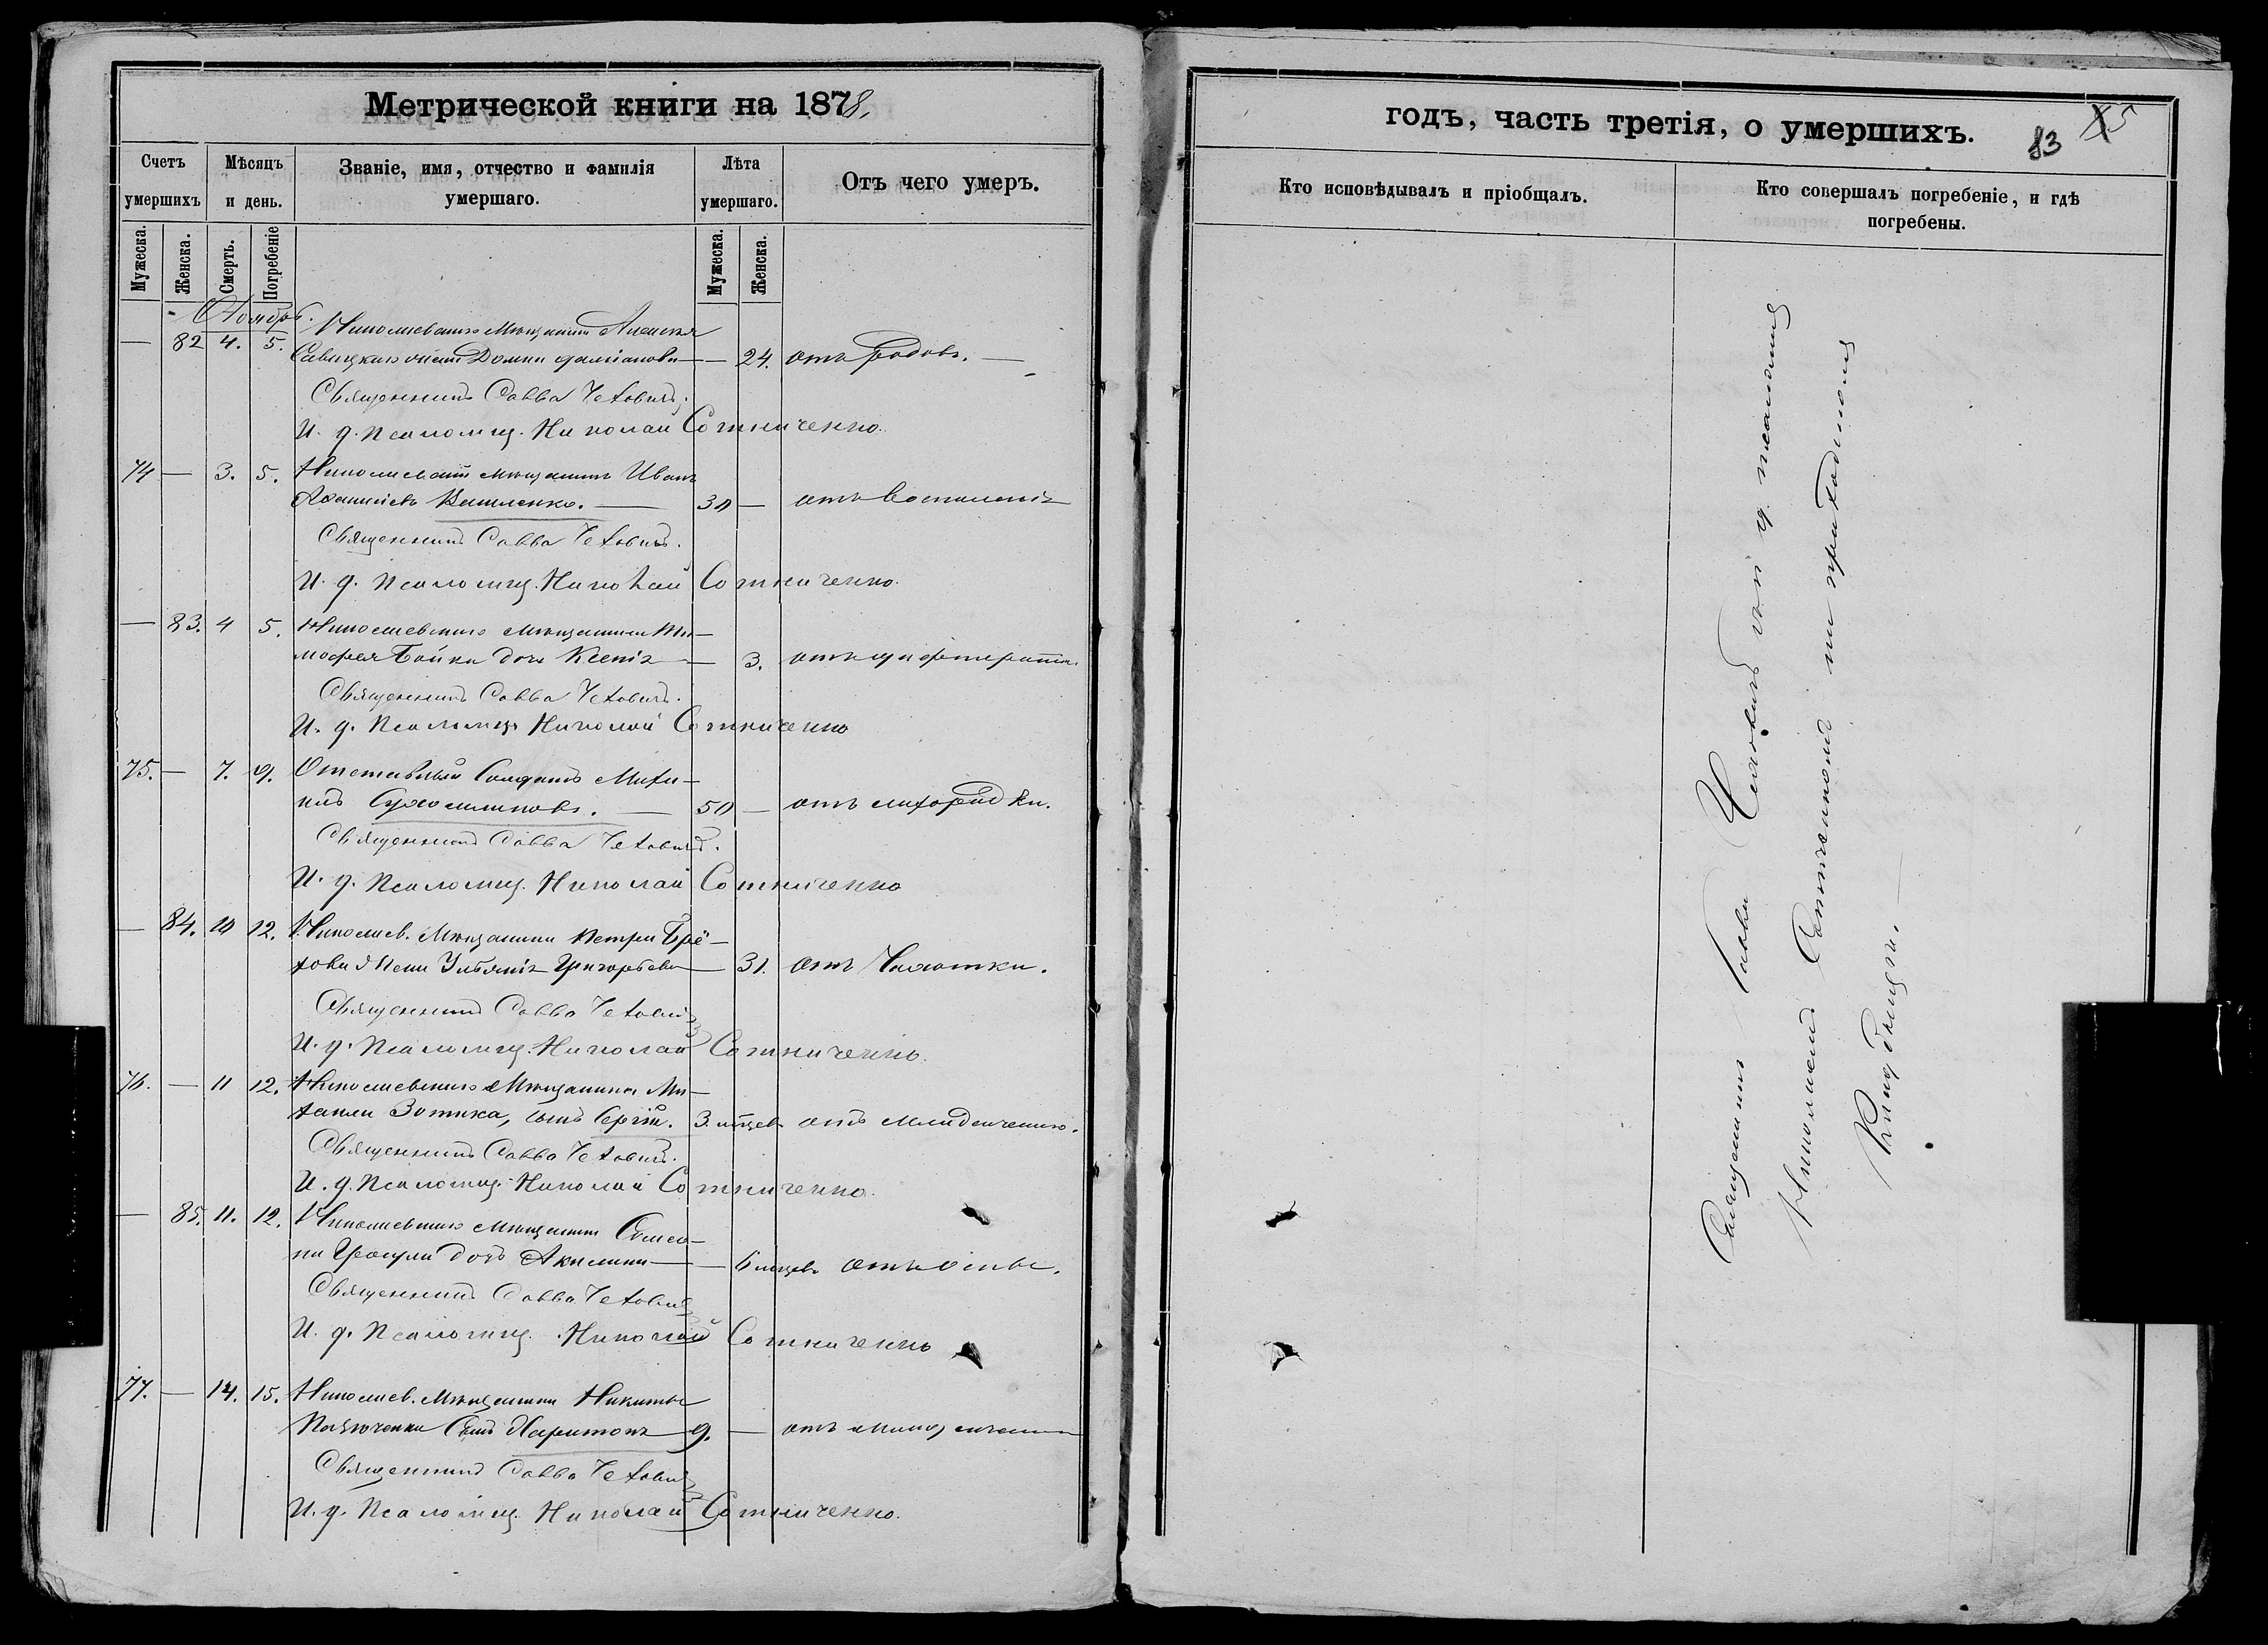 Метрической книги на 1878.
Счетъ умершихъ
Мѣсяцъ и день.
Званіе, имя, отчество и фамилія умершаго.
Лѣта умершаго.
Отъ чего умеръ.
Мужеска.
Женска.
Смерть.
Погребеніе
Мужеска.
Женска.
Ноябрь.
— 82 4. 5. Николаевскаго мѣщанина Алексѣя
Савицкаго жена Домна — — 24. отъ родовъ. —
Священникъ Савва Чеховичъ.
И. д. псаломщ. Николай Сотниченко.
74 — 3. 5. Николаевскій мѣщанинъ Иванъ
30 — отъ воспаленія
Священникъ Савва Чеховичъ.
И. д. Псаломщ. Николай Сотниченко.
— 83. 4 5. Николаевскаго мѣщанина Ти-
мофея Бойка дочь Ксенія — — 3.
Священникъ Савва Чеховичъ.
И. д. Псаломщ. Николай Сотниченко
75. — 7. 9. Отставный Солдатъ Миха-
илъ — 50 — отъ лихорадки.
Священникъ Савва Чеховичъ.
И. д. Псаломщ. Николай Сотниченко
— 84. 10 12. Николаев. мѣщанина Петра Брё-
хова жена Ульянія Григорьева — 31. отъ Чахотки.
Священникъ Савва Чеховичъ
И. д. Псаломщ. Николай Сотниченко.
76. — 11 12. Николаевскаго мѣщанина Ми-
хаила Зотика, сынъ Сергій. 3. мѣсяц. отъ младенческаго.
Священникъ Савва Чеховичъ.
И. д. Псаломщ. Николай Сотниченко.
— 85. 11. 12. Николаевскаго мѣщанина Семе-
на дочь Акилина — — 6 мѣсяц. отъ оспы.
Священникъ Савва Чеховичъ
И. д. Псаломщ. Николай Сотниченко
77. — 14. 15. Николаев. мѣщанина Никиты
сынъ Харитонъ 9. — отъ
Священникъ Савва Чеховичъ
И. д. Псаломщ. Николай Сотниченко.
годъ, часть третія, о умершихъ.
83
Кто исповѣдывалъ и пріобщалъ.
Кто совершалъ погребеніе, и гдѣ погребены.
Священникъ Савва Чеховичъ и д. псаломщ
Николай Сотниченко на приходскомъ
Кладбищѣ. —